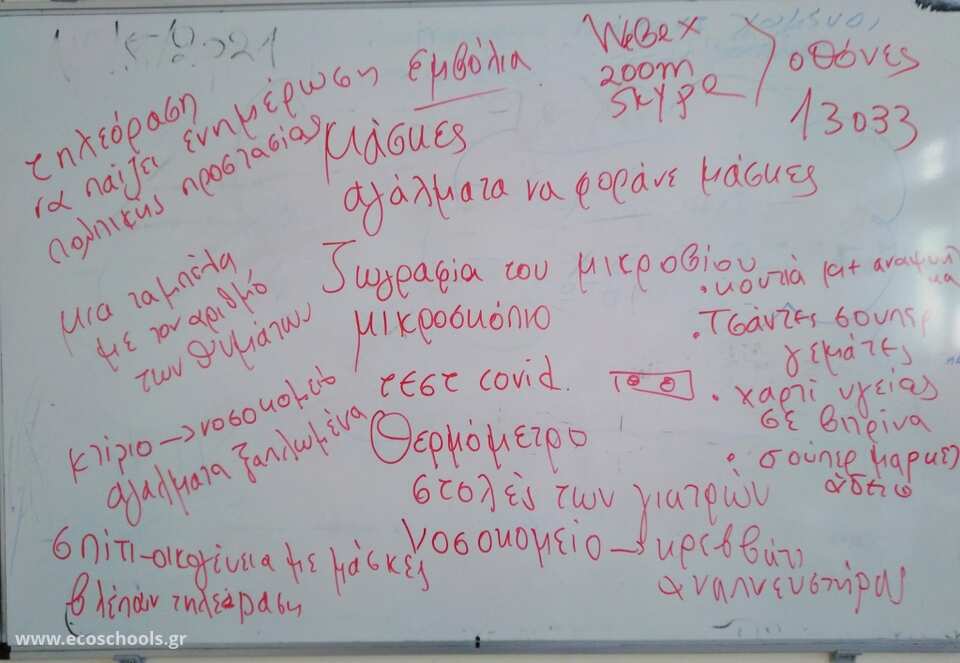 τηλεόραση
να παίζει ενημέρωση
πολιτικής προστασίας
εμβόλια
WeBex
zoom
skype
οθόνες
13033
Μάσκες
αγάλματα να φοράνε μάσκες
Μια ταμπέλα
με τον αριθμό
των θυμάτων
Ζωγραφια του μικροβίου
μικροσκόπιο
• κουτιά με αναψυκτι
κα
• Τσάντες σουπερ
γεμάτες
• χαρτί υγείας
σε βιτρίνα
• σούπερ μαρκετ
άδειο
τεστ covid.
κτίριο → νοσοκομείο
αγάλματα ξαπλωμένα
Θερμόμετρο
στολές των γιατρών
Νοσοκομείο → κρεββάτι
αναπνευστήρας
σπίτι-οικογένεια με μάσκες
βλέπουν τηλεόραση
www.ecoschools.gr